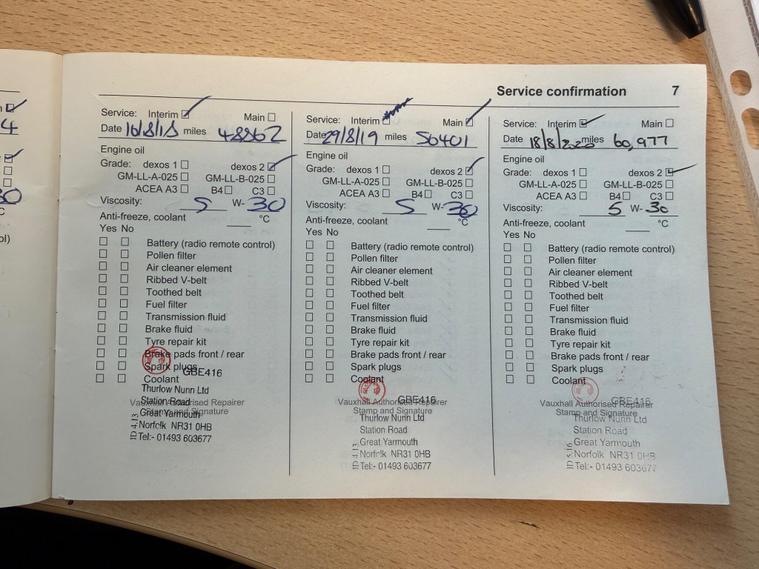 Service confirmation 7
Service: Interim Main
Date 16/8/18 miles 48862
Engine oil
Grade: dexos 1 dexos 2
GM-LL-A-025 GM-LL-B-025
ACEA A3 B4 C3
Viscosity: 5 W- 30
Anti-freeze, coolant °C
Yes No
Battery (radio remote control)
Pollen filter
Air cleaner element
Ribbed V-belt
Toothed belt
Fuel filter
Transmission fluid
Brake fluid
Tyre repair kit
Brake pads front / rear
Spark plugs
Coolant
GBE416
Vauxhall Authorised Repairer
Stamp and Signature
Thurlow Nunn Ltd
Station Road
Great Yarmouth
Norfolk NR31 0HB
Tel:- 01493 603677
Service: Interim Main
Date 29/8/19 miles 56401
Engine oil
Grade: dexos 1 dexos 2
GM-LL-A-025 GM-LL-B-025
ACEA A3 B4 C3
Viscosity: 5 W- 30
Anti-freeze, coolant °C
Yes No
Battery (radio remote control)
Pollen filter
Air cleaner element
Ribbed V-belt
Toothed belt
Fuel filter
Transmission fluid
Brake fluid
Tyre repair kit
Brake pads front / rear
Spark plugs
Coolant
GBE416
Vauxhall Authorised Repairer
Stamp and Signature
Thurlow Nunn Ltd
Station Road
Great Yarmouth
Norfolk NR31 0HB
Tel:- 01493 603677
Service: Interim Main
Date 18/8/2020 miles 60,977
Engine oil
Grade: dexos 1 dexos 2
GM-LL-A-025 GM-LL-B-025
ACEA A3 B4 C3
Viscosity: 5 W- 30
Anti-freeze, coolant °C
Yes No
Battery (radio remote control)
Pollen filter
Air cleaner element
Ribbed V-belt
Toothed belt
Fuel filter
Transmission fluid
Brake fluid
Tyre repair kit
Brake pads front / rear
Spark plugs
Coolant
GBE416
Vauxhall Authorised Repairer
Stamp and Signature
Thurlow Nunn Ltd
Station Road
Great Yarmouth
Norfolk NR31 0HB
Tel:- 01493 603677